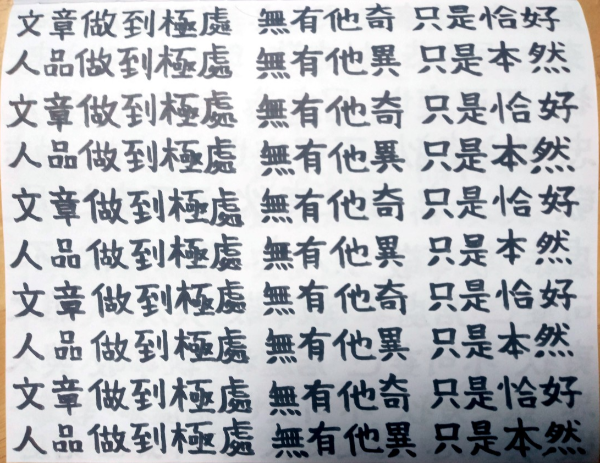 文章做到極處 無有他奇 只是恰好
人品做到極處 無有他異 只是本然
文章做到極處 無有他奇 只是恰好
人品做到極處 無有他異 只是本然
文章做到極處 無有他奇 只是恰好
人品做到極處 無有他異 只是本然
文章做到極處 無有他奇 只是恰好
人品做到極處 無有他異 只是本然
文章做到極處 無有他奇 只是恰好
人品做到極處 無有他異 只是本然